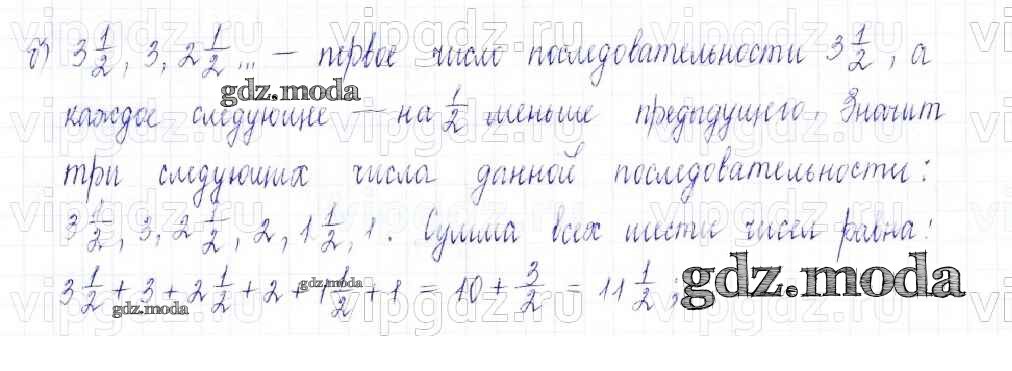 б) 3 1/2, 3, 2 1/2 ... — первое число последовательности 3 1/2, а
каждое следующее — на 1/2 меньше предыдущего. Значит
три следующих числа данной последовательности:
3 1/2, 3, 2 1/2, 2, 1 1/2, 1. Сумма всех шести чисел равна:
3 1/2 + 3 + 2 1/2 + 2 + 1 1/2 + 1 = 10 + 3/2 = 11 1/2;
gdz.moda
gdz.moda
gdz.moda
gdz.moda
vipgdz.ru